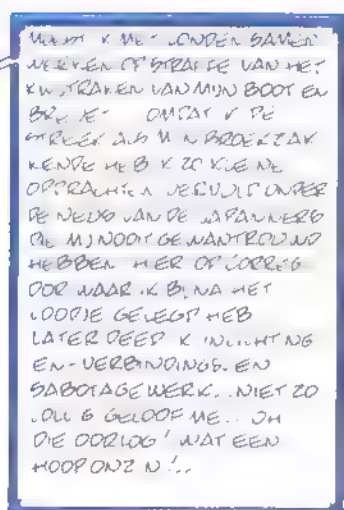 MOEST K ME ONDEN SAMEN
WERKEN OP STRAFFE VAN HET
KW TRAKEN VAN MIJN BOOT EN
OMDAT K DE
STREEK ALS M N BROEKZAK
KENDE HEB K ZO KLE NE
OPDRACHTEN VERVULD ONDER
DE NEUS VAN DE JAPANNERS
DIE MIJ NOOIT GEWANTROUWD
HEBBEN HIER OP
DOOR WAAR IK BIJNA HET
LOODJE GELEGD HEB
LATER DEED K INLICHT NG
EN-VERBINDINGS. EN
SABOTAGEWERK.. NIET ZO
LOLL G GELOOF ME... OH
DIE OORLOG! WAT EEN
HOOP ONZ N!..